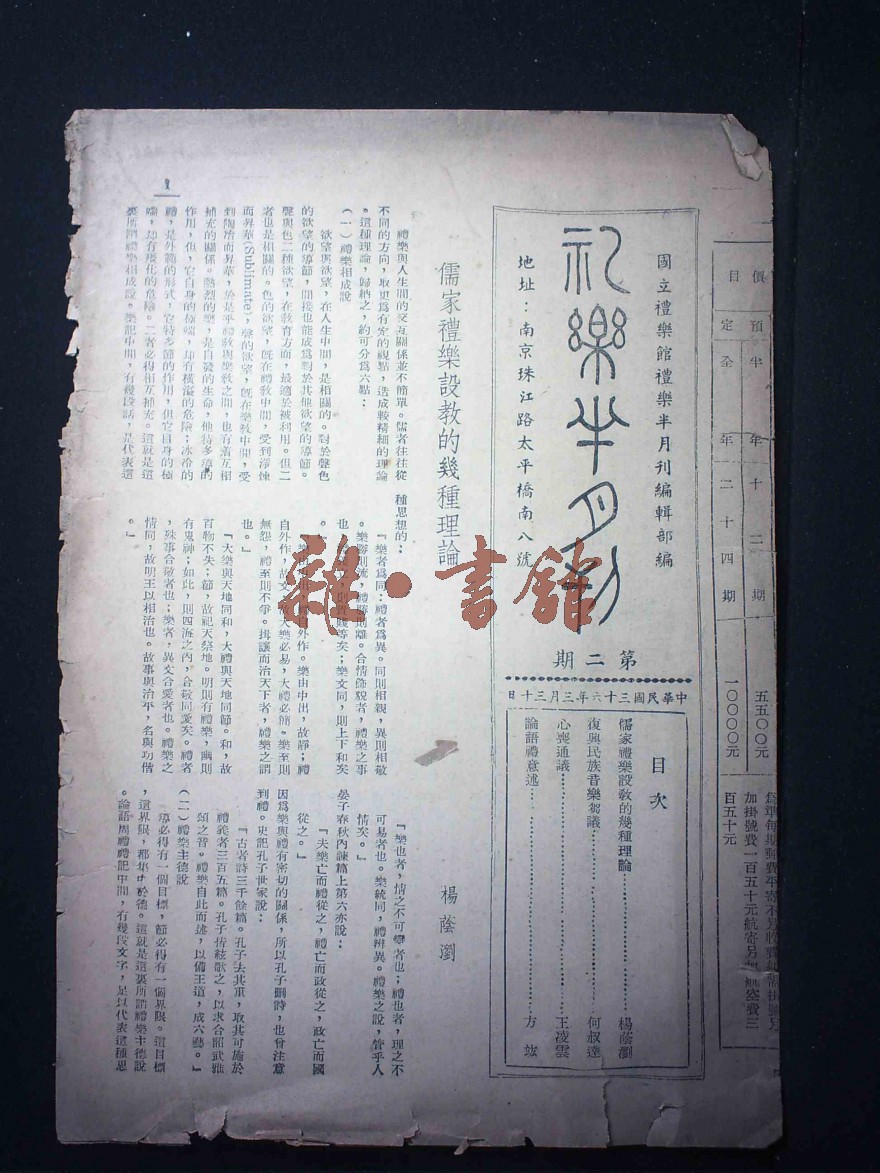 價目
預定
半年十二期
五五〇〇元
全年二十四期
一〇〇〇〇元
加掛號費一百五十元航寄另
百五十元
國立禮樂館禮樂半月刊編輯部編
礼樂半月刊
地址：南京珠江路太平橋南八號
第二期
中華民國三十六年三月三十日
目次
儒家禮樂設教的幾種理論……楊蔭瀏
復興民族音樂芻議……何叔達
心喪通議……王凌雲
論語禮意述……方竑
儒家禮樂設教的幾種理論
楊蔭瀏
禮樂與人生間的交互關係並不簡單。儒者往往從
不同的方向，取更爲有定的視點，造成較精細的理論
。這種理論，歸納之，約可分爲六點：
（一）禮樂相成說
欲望與欲望，在人生中間，是相關的。對於聲色
的欲望的導節，間接也能成爲對於其他欲望的導節。
聲與色二種欲望，在教育方面，最適於被利用。但二
者也是相關的。色的欲望，旣在禮敎中間，受到淨煉
而昇華(Sublimate)，聲的欲望，旣在樂敎中間，受
到陶冶而昇華，於是乎禮敎與樂敎之間，也有着互相
補充的關係。熱烈的樂，是自發的生命，他特多導的
作用，但，它自身的極端，却有橫溢的危險；冰冷的
禮，是外範的形式，它特多節的作用，但它自身的極
端，却有殭化的危險。二者必得相互補充。這就是這
裏所謂禮樂相成說。樂記中間，有幾段話，是代表這
種思想的：
『樂者爲同；禮者爲異。同則相親，異則相敬
。樂勝則流，禮勝則離。合情飾貌者，禮樂之事
也
則貴賤等矣；樂文同，則上下和矣
。』
外作。樂由中出，故靜；禮
自外作，故文。大樂必易，大禮必簡。樂至則
無怨，禮至則不爭。揖讓而治天下者，禮樂之謂
也。』
『大樂與天地同和，大禮與天地同節。和，故
百物不失；節，故祀天祭地。明則有禮樂，幽則
有鬼神；如此，則四海之內，合敬同愛矣。禮者
，殊事合敬者也；樂者，異文合愛者也。禮樂之
情同，故明王以相沿也。故事與治平，名與功偕
。』
『樂也者，情之不可變者也；禮也者，理之不
可易者也。樂統同，禮辨異。禮樂之說，管乎人
情矣。』
晏子春秋內諫篇上第六亦說：
『夫樂亡而禮從之，禮亡而政從之，政亡而國
從之。』
因爲樂與禮有密切的關係，所以孔子刪詩，也曾注意
到禮。史記孔子世家說：
『古者詩三千餘篇。孔子去其重，取其可施於
禮義者三百五篇。孔子皆絃歌之，以求合韶武雅
頌之音。禮樂自此而述，以備王道，成六藝。』
（二）禮樂主德說
導必得有一個目標，節必得有一個界限。這目標
，這界限，都集中於德。這就是這裏所謂禮樂主德說
。論語周禮禮記中間，有幾段文字，足以代表這種思
雜·書館